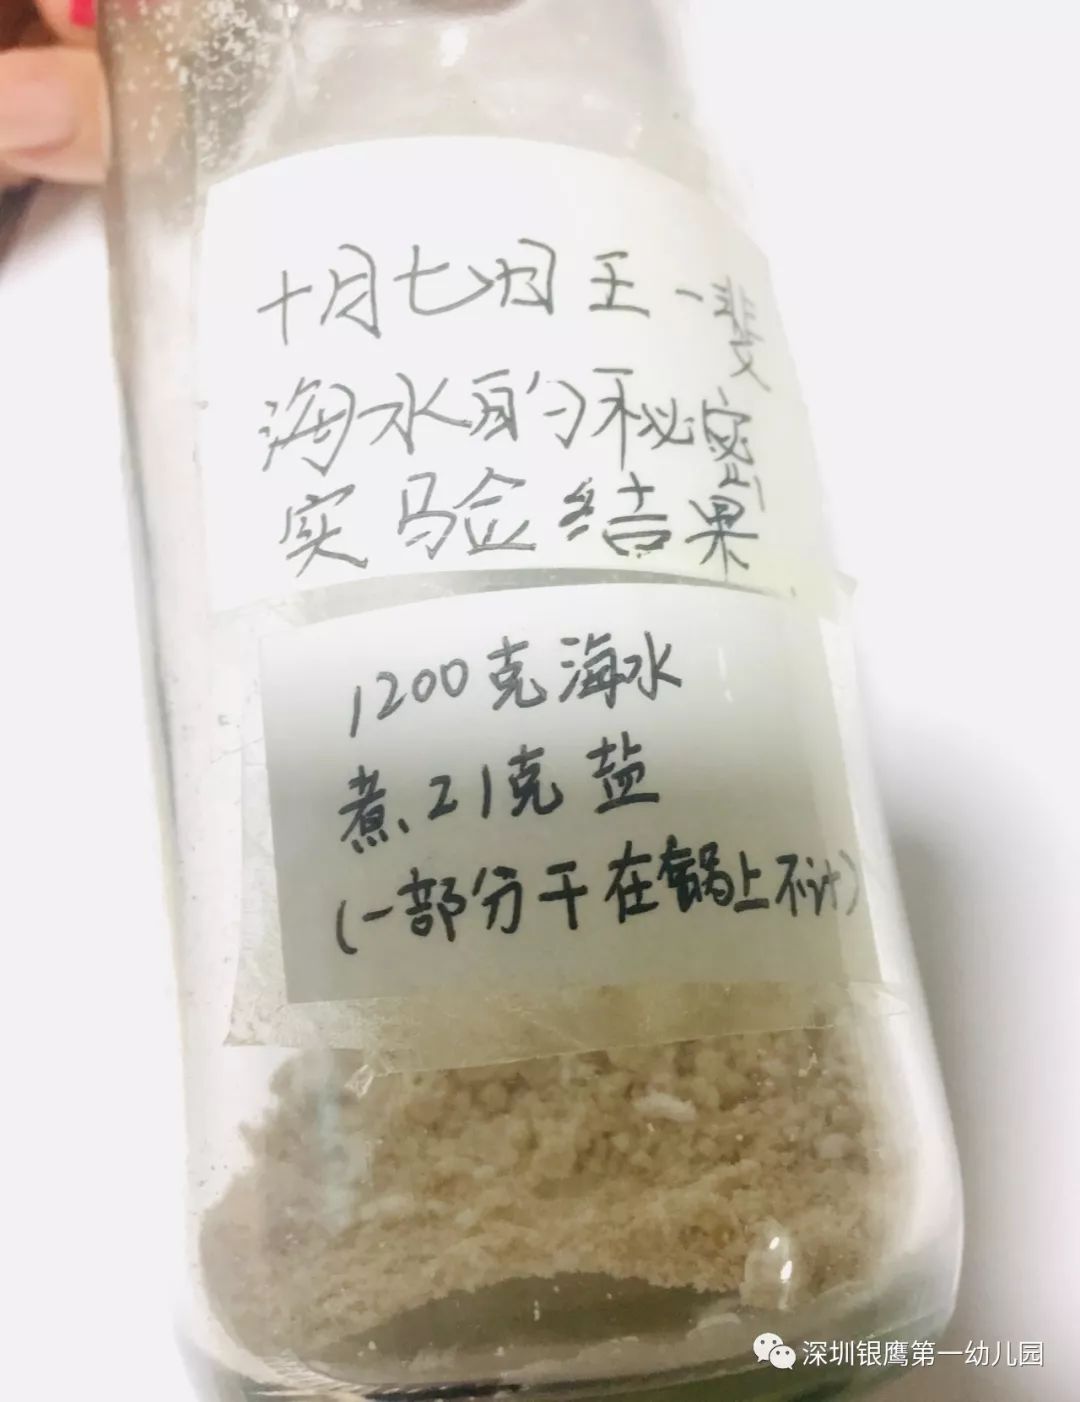 十月七日王一斐
海水的秘密
实验结果
1200克海水
煮21克盐
(一部分干在锅上不计)
深圳银鹰第一幼儿园